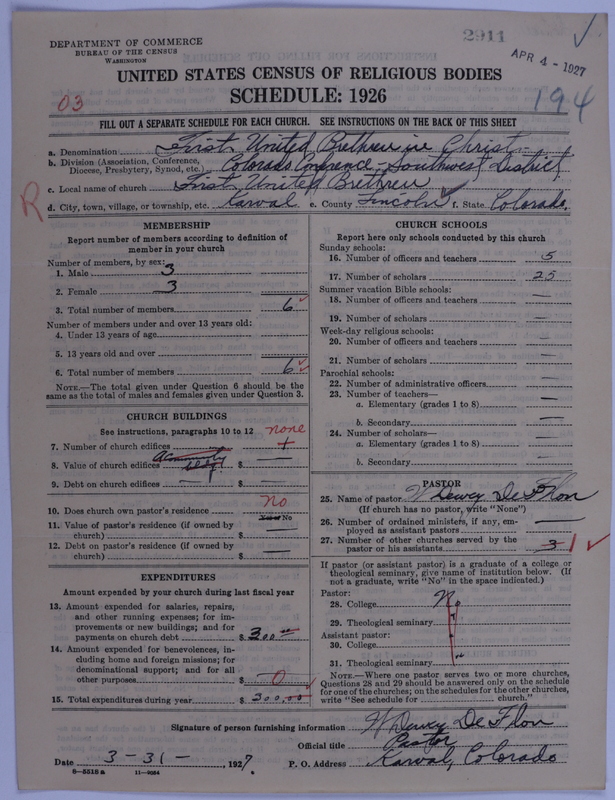 2911
DEPARTMENT OF COMMERCE
BUREAU OF THE CENSUS
WASHINGTON
APR 4 - 1927
UNITED STATES CENSUS OF RELIGIOUS BODIES
SCHEDULE: 1926
03
194
FILL OUT A SEPARATE SCHEDULE FOR EACH CHURCH. SEE INSTRUCTIONS ON THE BACK OF THIS SHEET
a. Denomination First United Brethren in Christ
b. Division (Association, Conference, Diocese, Presbytery, Synod, etc.) Colorado Conference - Southwest District
c. Local name of church First United Brethren
R
d. City, town, village, or township, etc. Karval e. County Lincoln f. State Colorado.
MEMBERSHIP
Report number of members according to definition of
member in your church
Number of members, by sex:
1. Male 3
2. Female 3
3. Total number of members 6
Number of members under and over 13 years old:
4. Under 13 years of age
5. 13 years old and over
6. Total number of members 6
NOTE.—The total given under Question 6 should be the
same as the total of males and females given under Question 3.
CHURCH BUILDINGS
See instructions, paragraphs 10 to 12
none
7. Number of church edifices
8. Value of church edifices $ —
9. Debt on church edifices — $ —
10. Does church own pastor's residence no
Yes or No
11. Value of pastor's residence (if owned by
church) $ —
12. Debt on pastor's residence (if owned by
church) $ —
EXPENDITURES
Amount expended by your church during last fiscal year
13. Amount expended for salaries, repairs,
and other running expenses; for im-
provements or new buildings; and for
payments on church debt $ 300
14. Amount expended for benevolences, in-
cluding home and foreign missions; for
denominational support; and for all
other purposes $ 0
15. Total expenditures during year $ 300.00
CHURCH SCHOOLS
Report here only schools conducted by this church
Sunday schools:
16. Number of officers and teachers 5
17. Number of scholars 25
Summer vacation Bible schools:
18. Number of officers and teachers —
19. Number of scholars —
Week-day religious schools:
20. Number of officers and teachers —
21. Number of scholars —
Parochial schools:
22. Number of administrative officers —
23. Number of teachers—
a. Elementary (grades 1 to 8) —
b. Secondary —
24. Number of scholars—
a. Elementary (grades 1 to 8) —
b. Secondary —
PASTOR
25. Name of pastor W Dewey DeFlon
(If church has no pastor, write "None")
26. Number of ordained ministers, if any, em-
ployed as assistant pastors —
27. Number of other churches served by the
pastor or his assistants 3 1
If pastor (or assistant pastor) is a graduate of a college or
theological seminary, give name of institution below. (If
not a graduate, write "No" in the space indicated.)
Pastor:
28. College No
29. Theological seminary
Assistant pastor:
30. College
31. Theological seminary
NOTE.—Where one pastor serves two or more churches,
Questions 28 and 29 should be answered only on the schedule
for one of the churches; on the schedules for the other churches,
write "See schedule for church."
Signature of person furnishing information W Dewey DeFlon
Official title Pastor
Date 3-31-, 1927 P. O. Address Karval, Colorado
8—5518a 11—9024